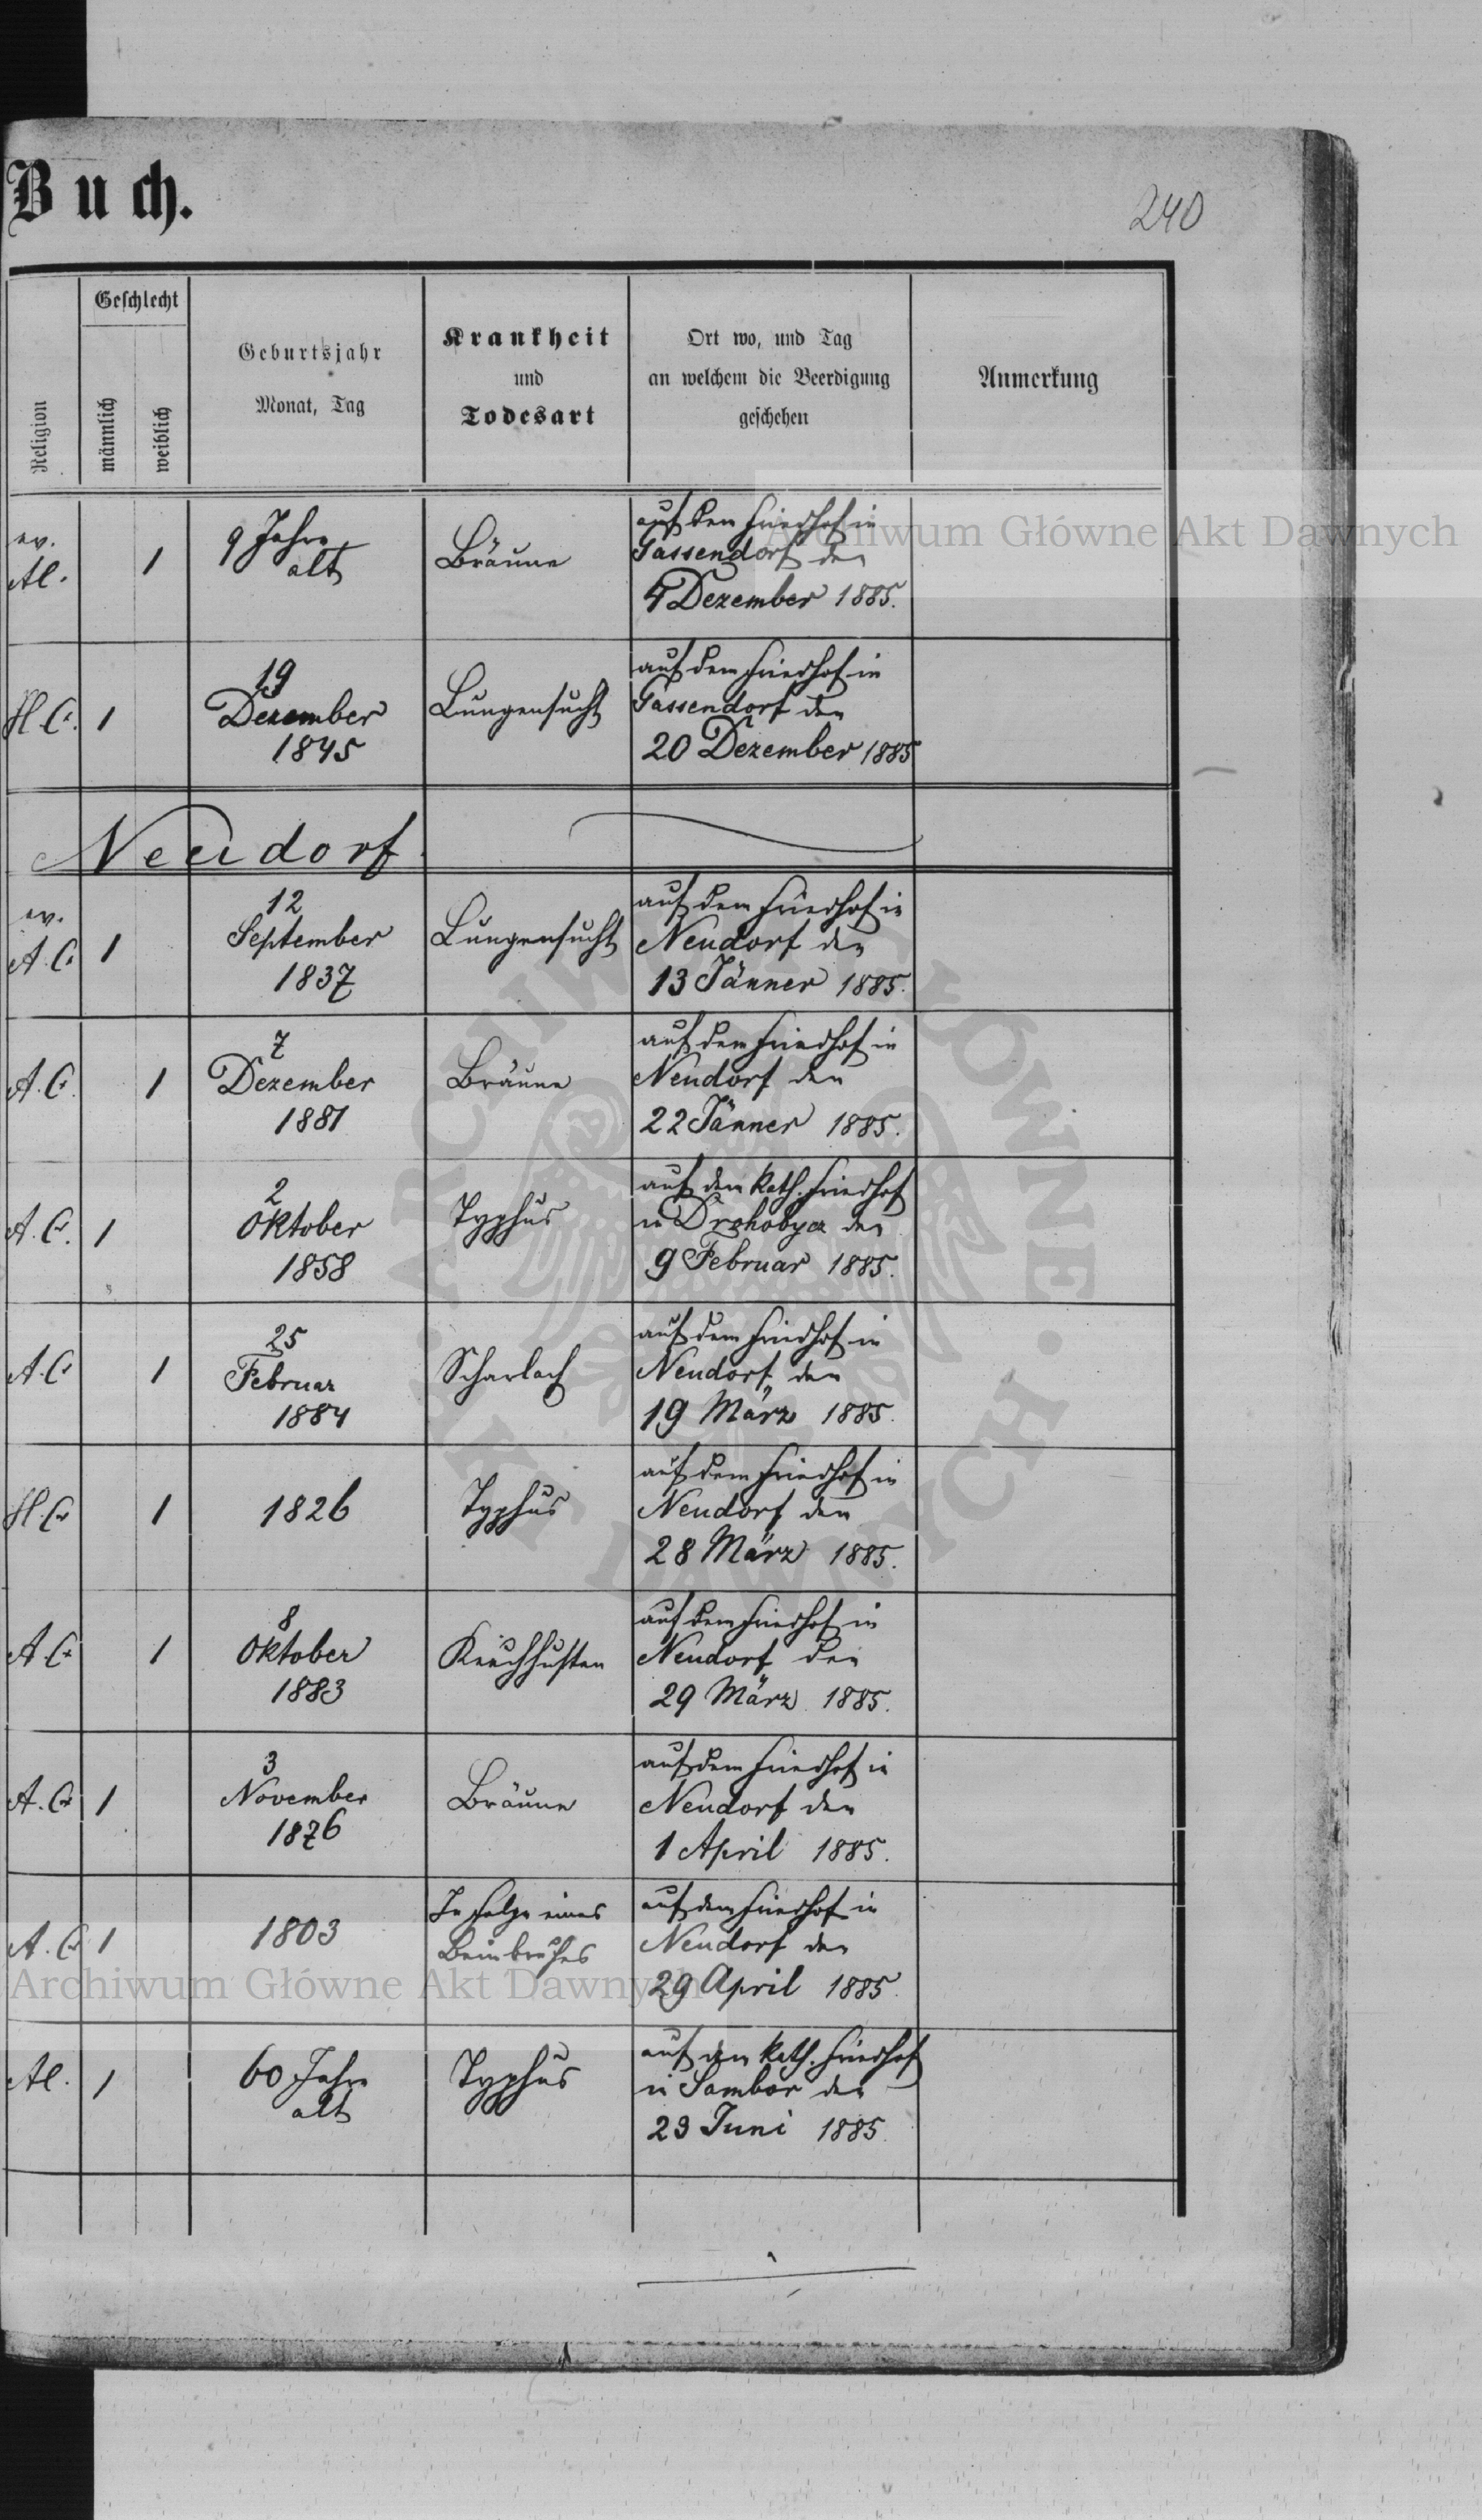 Buch.
240
Religion
Geschlecht
männlich
weiblich
Geburtsjahr
Monat, Tag
Krankheit
und
Todesart
Ort wo, und Tag
an welchem die Beerdigung
geschehen
Anmerkung
ev.
1
9 Jahre
alt
Bräune
auf dem Friedhof in
Gassendorf den
4 Dezember 1885.
H. C.
1
19
Dezember
1845
Lungensucht
auf dem Friedhof in
Gassendorf den
20 Dezember 1885
Neudorf
ev.
A. C.
1
12
September
1837
Lungensucht
auf dem Friedhof in
Neudorf den
13 Jänner 1885.
A. C.
1
7
Dezember
1881
Bräune
auf dem Friedhof in
Neudorf den
22 Jänner 1885.
A. C.
1
2
Oktober
1858
Typhus
auf dem kath. Friedhof
in Drohobycz den
9 Februar 1885.
A. C.
1
25
Februar
1884
Scharlach
auf dem Friedhof in
Neudorf den
19 März 1885.
H. C.
1
1826
Typhus
auf dem Friedhof in
Neudorf den
28 März 1885.
A. C.
1
8
Oktober
1883
Keuchhusten
auf dem Friedhof in
Neudorf den
29 März 1885.
A. C.
1
3
November
1876
Bräune
auf dem Friedhof in
Neudorf den
1 April 1885.
A. C.
1
1803
In Folge eines
Beinbruches
auf dem Friedhof in
Neudorf den
29 April 1885.
1
60 Jahre
alt
Typhus
auf dem kath. Friedhof
in Sambor den
23 Juni 1885.
Archiwum Główne Akt Dawnych
Archiwum Główne Akt Dawnych
ARCHIWUM GŁÓWNE · AKT DAWNYCH ·